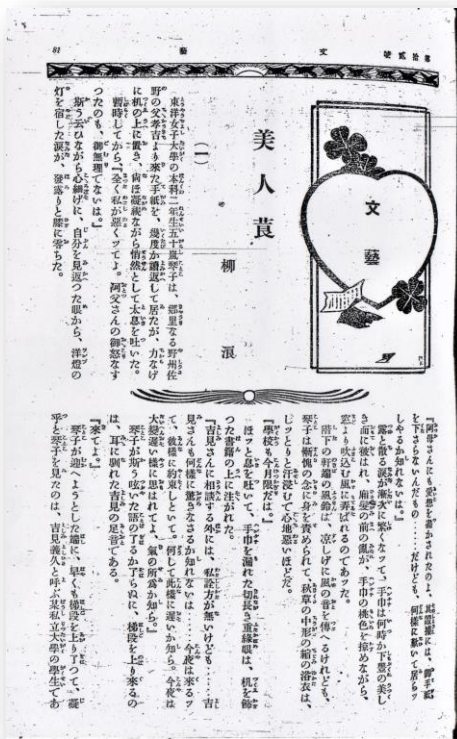 第拾貳號
文藝
81
文藝
美人莨
(一)
柳浪
東洋女子大學の本科二年生五十嵐琴子は、鄕里なる野州佐
野の父孝吉より來た手紙を、幾度か讀返して居たが、力なげ
に机の上に置き、尙ほ凝視ながら悄然として太息を吐いた。
暫時してから、『全く私が惡くッてよ。阿父さんの御怒なす
つたのも、御無理でないは。』
斯う云ひながら心細げに、自分を見返つた眼から、洋燈の
灯を宿した淚が、露りと膝に零ちた。
『阿母さんにも愛想を盡かされたのよ、には、御手紙
を下さらないんだもの‥‥だけども、何樣に歎いて居らッ
しやるか知れないは。』
露と散る淚が漸次に繁くなツて、手巾は何時か下豐の美し
き面に被はれ、廂髮の前の亂が、手巾の桃色を掠めながら、
窓より吹込む風に弄ばれるのであつた。
階下の軒端の風鈴は、涼しげに風の音を傳へるけれども、
琴子は慚愧の念に身を責められて、秋草の中形の縮の浴衣は、
じッとりと汗浸むで心地惡いほどだ。
『學校も今月限だは。』
ほッと息を吐いて、手巾を漏れた切長き重緣眼は、机を飾
つた書籍の上に注がれた。
『吉見さんに相談する外には、私詮方が無いけども‥‥吉
見さんも何樣に驚きなさるか知れないは‥‥今夜は來るッ
て、彼樣に約束しといて。何して此樣に遲いか知ら。今夜は
大變遲い樣に思はれてよ、氣の所爲か知ら。』
琴子が斯う呟いた語の了るか了らぬに、梯段を上り來るの
は、耳に馴れた吉見の足音である。
『來てよ。』
琴子が迎へようとした端に、早くも梯段を上り了つて、凝
乎と琴子を見たのは、吉見義久と呼ぶ某私立大學の學生であ